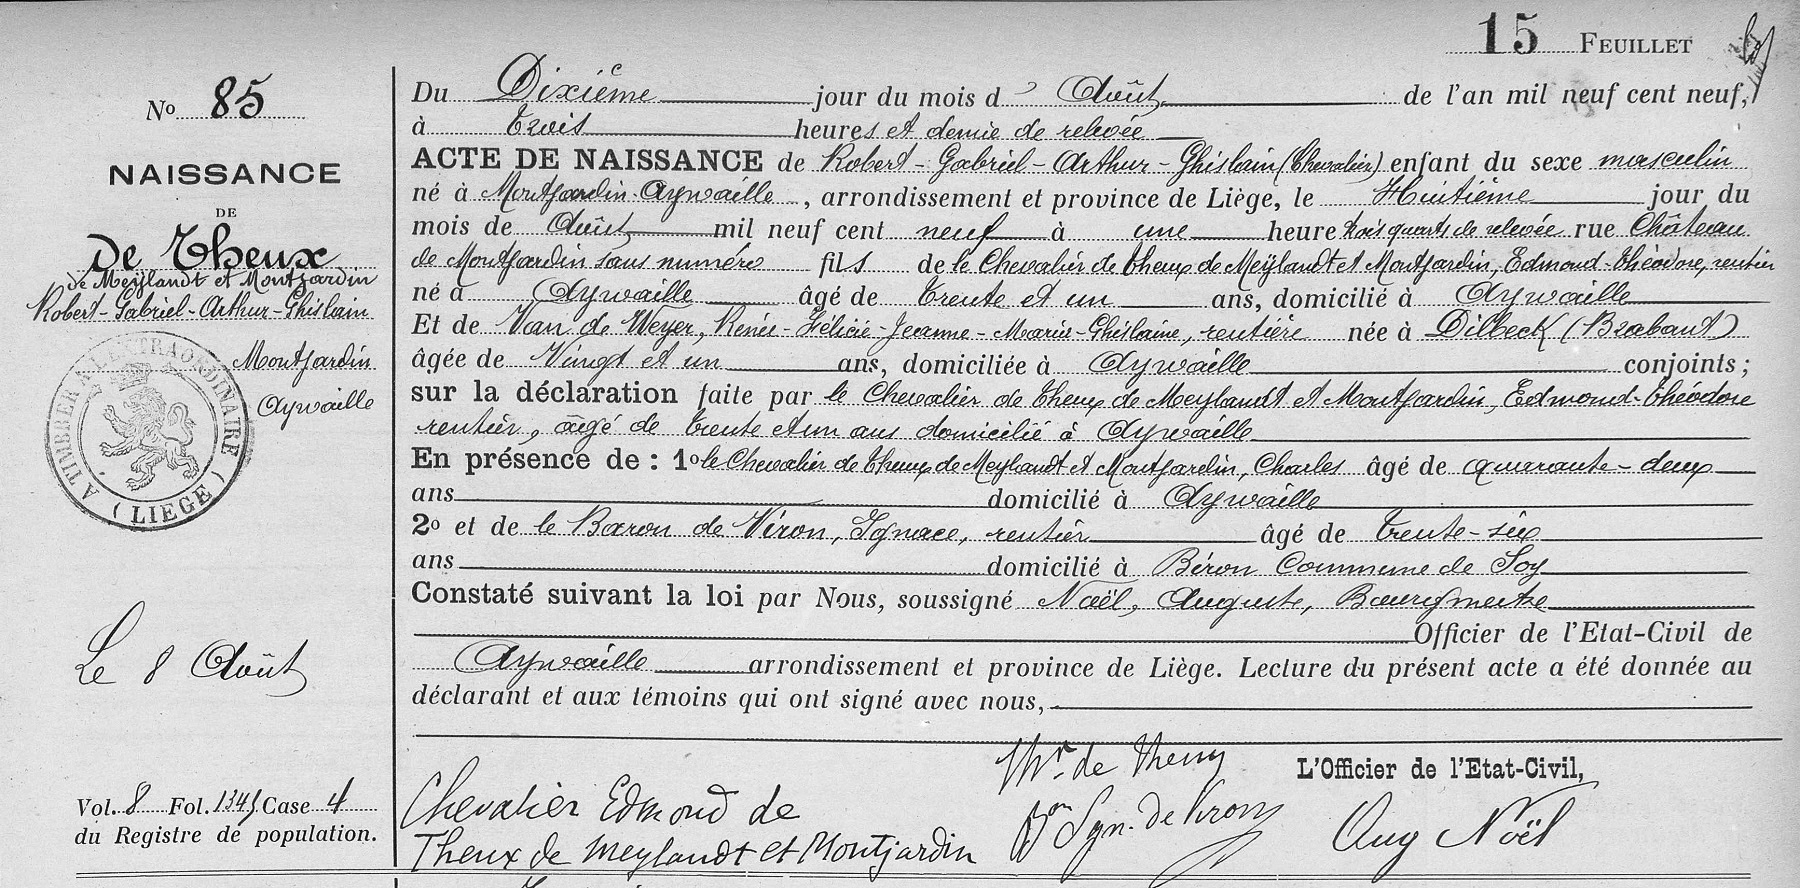 15 FEUILLET
No 85
NAISSANCE
DE
De Theux
de Meÿlandt et Montjardin
Robert-Gabriel-Arthur-Ghislain
Montjardin
Aywaille
A TIMBRER A L'EXTRAORDINAIRE
( LIEGE )
Le 8 Août
Vol. 8 Fol. Case 4
du Registre de population.
Du Dixième jour du mois d' Août de l'an mil neuf cent neuf,
à trois heures et demie de relevée
ACTE DE NAISSANCE de Robert-Gabriel-Arthur-Ghislain (Chevalier) enfant du sexe masculin
né à Montjardin-Aywaille, arrondissement et province de Liège, le Huitième jour du
mois de Août mil neuf cent neuf à une heure trois quarts de relevée rue Château
de Montjardin sans numéro fils de le Chevalier de Theux de Meÿlandt et Montjardin, Edmond-Théodore, rentier
né à Aywaille âgé de trente et un ans, domicilié à Aywaille
Et de Van de Weyer, Renée-Félicie-Jeanne-Marie-Ghislaine, rentière née à Dilbeck (Brabant)
âgée de Vingt et un ans, domiciliée à Aywaille conjoints;
sur la déclaration faite par le Chevalier de Theux de Meylandt et Montjardin, Edmond-Théodore
rentier, âgé de trente et un ans domicilié à Aywaille
En présence de : 1o le Chevalier de Theux de Meylandt et Montjardin, Charles âgé de quarante-deux
ans domicilié à Aywaille
2o et de le Baron de Viron, Ignace, rentier âgé de trente-six
ans domicilié à Béron Commune de Soy
Constaté suivant la loi par Nous, soussigné Noël, Auguste, Bourgmestre
Officier de l'Etat-Civil de
Aywaille arrondissement et province de Liège. Lecture du présent acte a été donnée au
déclarant et aux témoins qui ont signé avec nous,
Chevalier Edmond de
Theux de Meylandt et Montjardin
de Theux
Bon Ign. de Viron
L'Officier de l'Etat-Civil,
Aug Noël